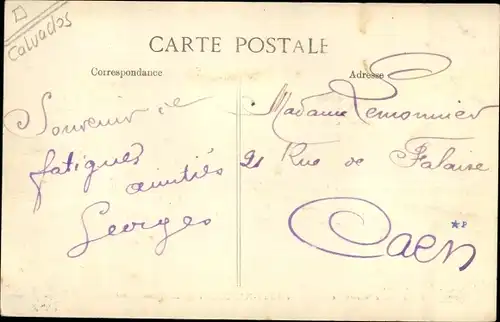 Calvados
CARTE POSTALE
Correspondance
Adresse
Souvenir de
fatigues
amitiés
Georges
Madame Lemonnier
21 Rue de Falaise
Caen